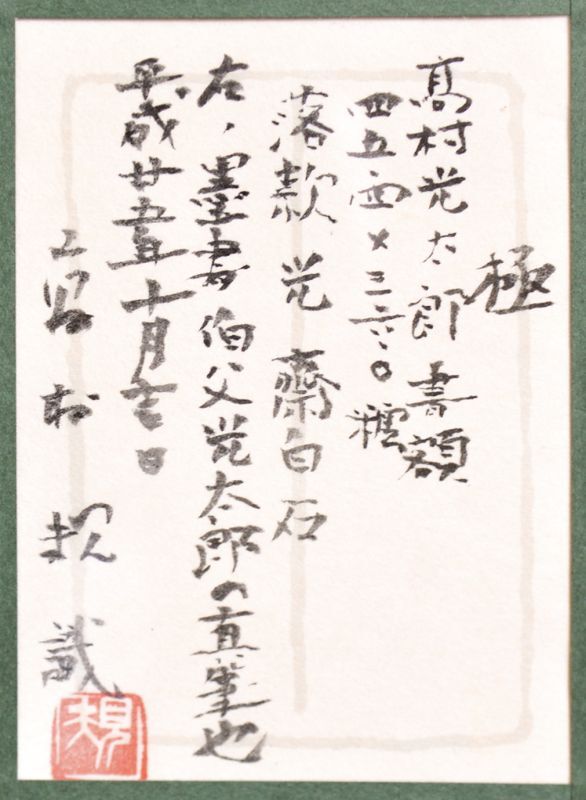 極
高村光太郎 書額
四五・四×三六・〇糎
落款 光 齋白石
右、墨書 伯父光太郎の真筆也
平成廿五年十月吉日
高村 規 識
規